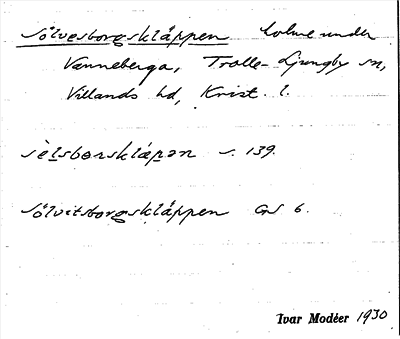 Sölvesborgskläppen holme under
Vanneberga, Trolle-Ljungby sn,
Villands hd, Krist. l.
sèlsbɑrsklápən s. 139.
Sölvitsborgskläppen GS 6.
Ivar Modéer 1930